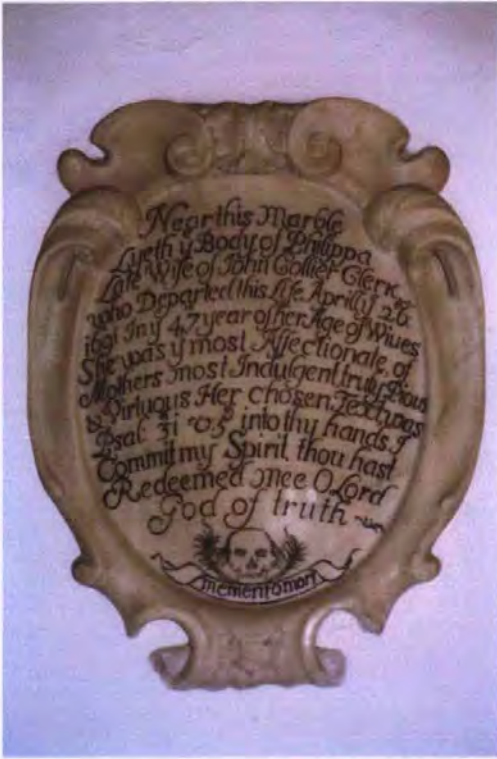 Near this Marble
Lyeth y Body of Philippa
Late Wife of John Collier Clerk
who Departed this Life April y 26
1691 In y 47 year of her Age of Wiues
She was y most Affectionate, of
Mothers most Indulgent, truly Pious
& Virtuous Her chosen Text was
Psal: 31 v 5 into thy hands I
Commit my Spirit, thou hast
Redeemed mee O Lord
God of truth
memento mori